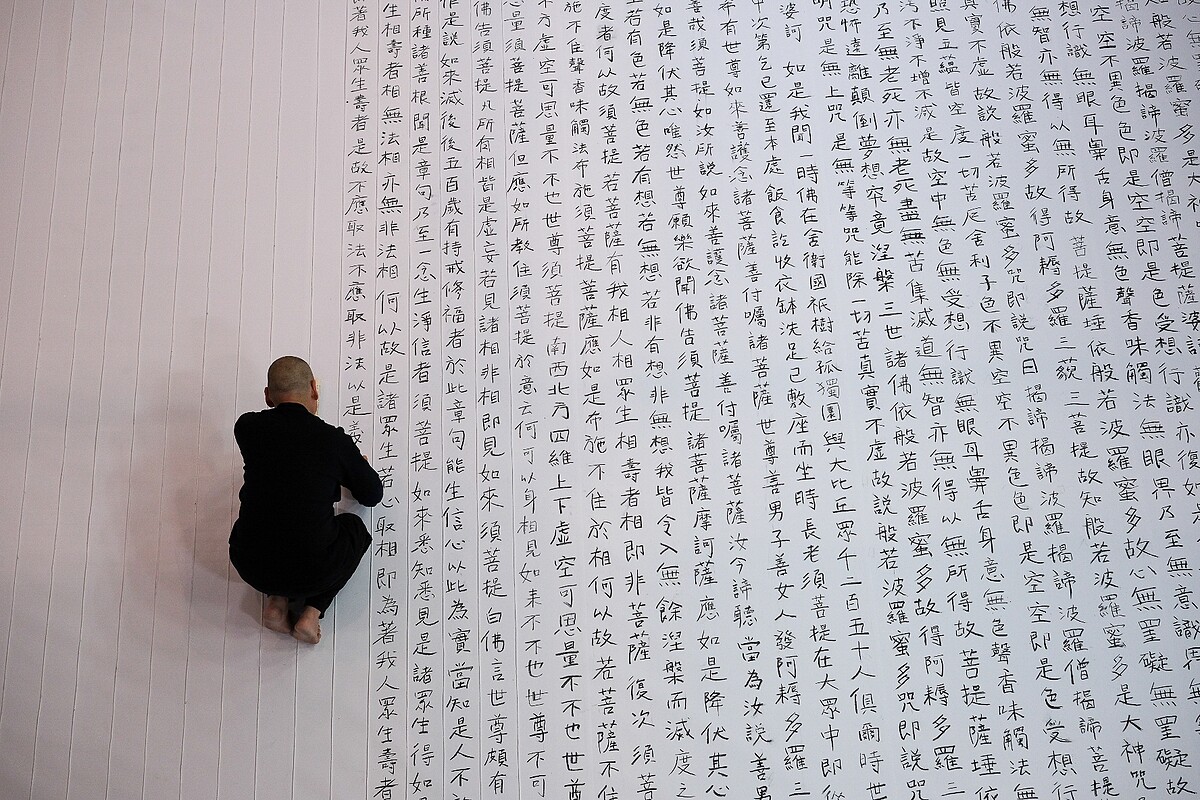 般若波羅蜜多是大神
揭諦波羅揭諦波羅僧揭諦菩提薩婆訶
空空不異色色即是空空即是色受想行識亦復如
想行識無眼耳鼻舌身意無色聲香味觸法無眼界乃至無意識界
無智亦無得以無所得故 菩提薩埵依般若波羅蜜多故心無罣礙無罣礙故
佛依般若波羅蜜多故得阿耨多羅三藐三菩提故知般若波羅蜜多是大神咒
真實不虛故說般若波羅蜜多咒即說咒曰揭諦揭諦波羅揭諦波羅僧揭諦菩提
照見五蘊皆空度一切苦厄舍利子色不異空空不異色色即是空空即是色受想行
汚不淨不增不減是故空中無色無受想行識無眼耳鼻舌身意無色聲香味觸法無
乃至無老死亦無老死盡無苦集滅道無智亦無得以無所得故菩提薩埵依
恐怖遠離顛倒夢想究竟涅槃三世諸佛依般若波羅蜜多故得阿耨多羅三
明咒是無上咒是無等等咒能除一切苦真實不虛故說般若波羅蜜多咒即說咒
婆訶 如是我聞一時佛在舍衛國祇樹給孤獨園與大比丘眾千二百五十人俱爾時世
中次第乞已還至本處飯食訖收衣缽洗足已敷座而坐時長老須菩提在大眾中即從
希有世尊如來善護念諸菩薩善付囑諸菩薩世尊善男子善女人發阿耨多羅三
善哉須菩提如汝所說如來善護念諸菩薩善付囑諸菩薩汝今諦聽當為汝說善男
如是降伏其心唯然世尊願樂欲聞佛告須菩提諸菩薩摩訶薩應如是降伏其心
若有色若無色若有想若無想若非有想非無想我皆令入無餘涅槃而滅度之
度者何以故須菩提若菩薩有我相人相眾生相壽者相即非菩薩復次須菩
施不住聲香味觸法布施須菩提菩薩應如是布施不住於相何以故若菩薩不住
方虛空可思量不不也世尊須菩提南西北方四維上下虛空可思量不不也世尊
思量須菩提菩薩但應如所教住須菩提於意云何可以身相見如來不不也世尊不可
佛告須菩提凡所有相皆是虛妄若見諸相非相即見如來須菩提白佛言世尊頗有
作是說如來滅後後五百歲有持戒修福者於此章句能生信心以此為實當知是人不於
所種諸善根聞是章句乃至一念生淨信者須菩提如來悉知悉見是諸眾生得如
生相壽者相無法相亦無非法相何以故是諸眾生若心取相即為著我人眾生壽者
著我人眾生壽者是故不應取法不應取非法以是義